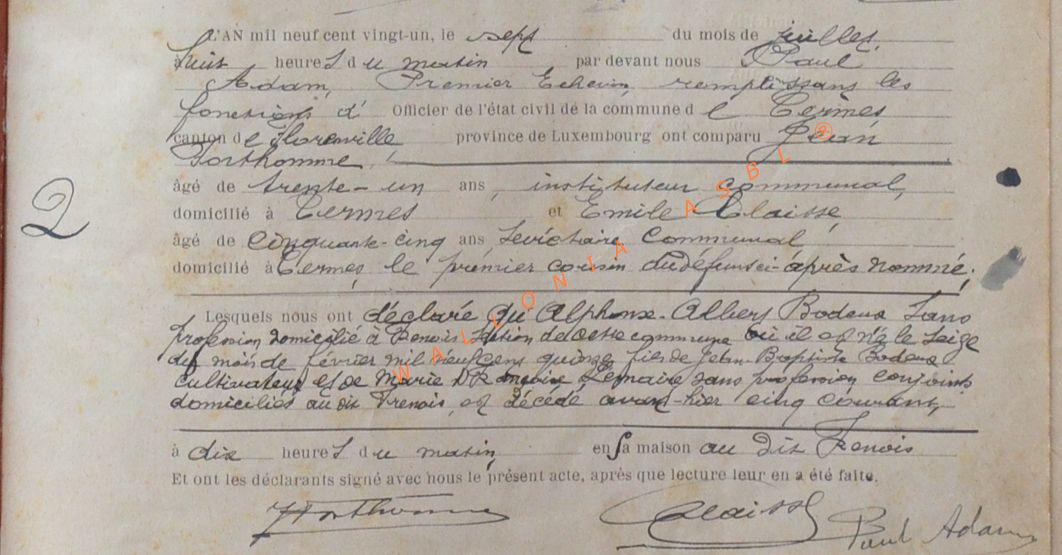 L'AN mil neuf cent vingt-un, le sept du mois de juillet,
huit heures du matin par devant nous Paul
Adam, Premier Echevin remplissans les
fonctions d' Officier de l'état civil de la commune de Termes
canton de Florenville province de Luxembourg ont comparu Jean
Forthomme,
âgé de trente-un ans, instituteur communal,
domicilié à Termes et Emile Claisse,
âgé de cinquante-cinq ans Secrétaire communal
domicilié à Termes, le premier cousin du défunt ci-après nommé;
2
Lesquels nous ont déclaré qu'Alphonse-Albert Bodeux Sans
profession domicilié à Frenois section de cette commune où il est né le seize
du mois de février mil neuf cent quinze fils de Jean-Baptiste Bodeux
cultivateur et de Marie Lemaire sans profession conjoints
domiciliés au dit Frenois, est décédé avant-hier cinq courant,
à dix heures du matin, en sa maison au dit Frenois
Et ont les déclarants signé avec nous le présent acte, après que lecture leur en a été faite.
JForthomme Claisse Paul Adam
WALLONIA ASBL ®